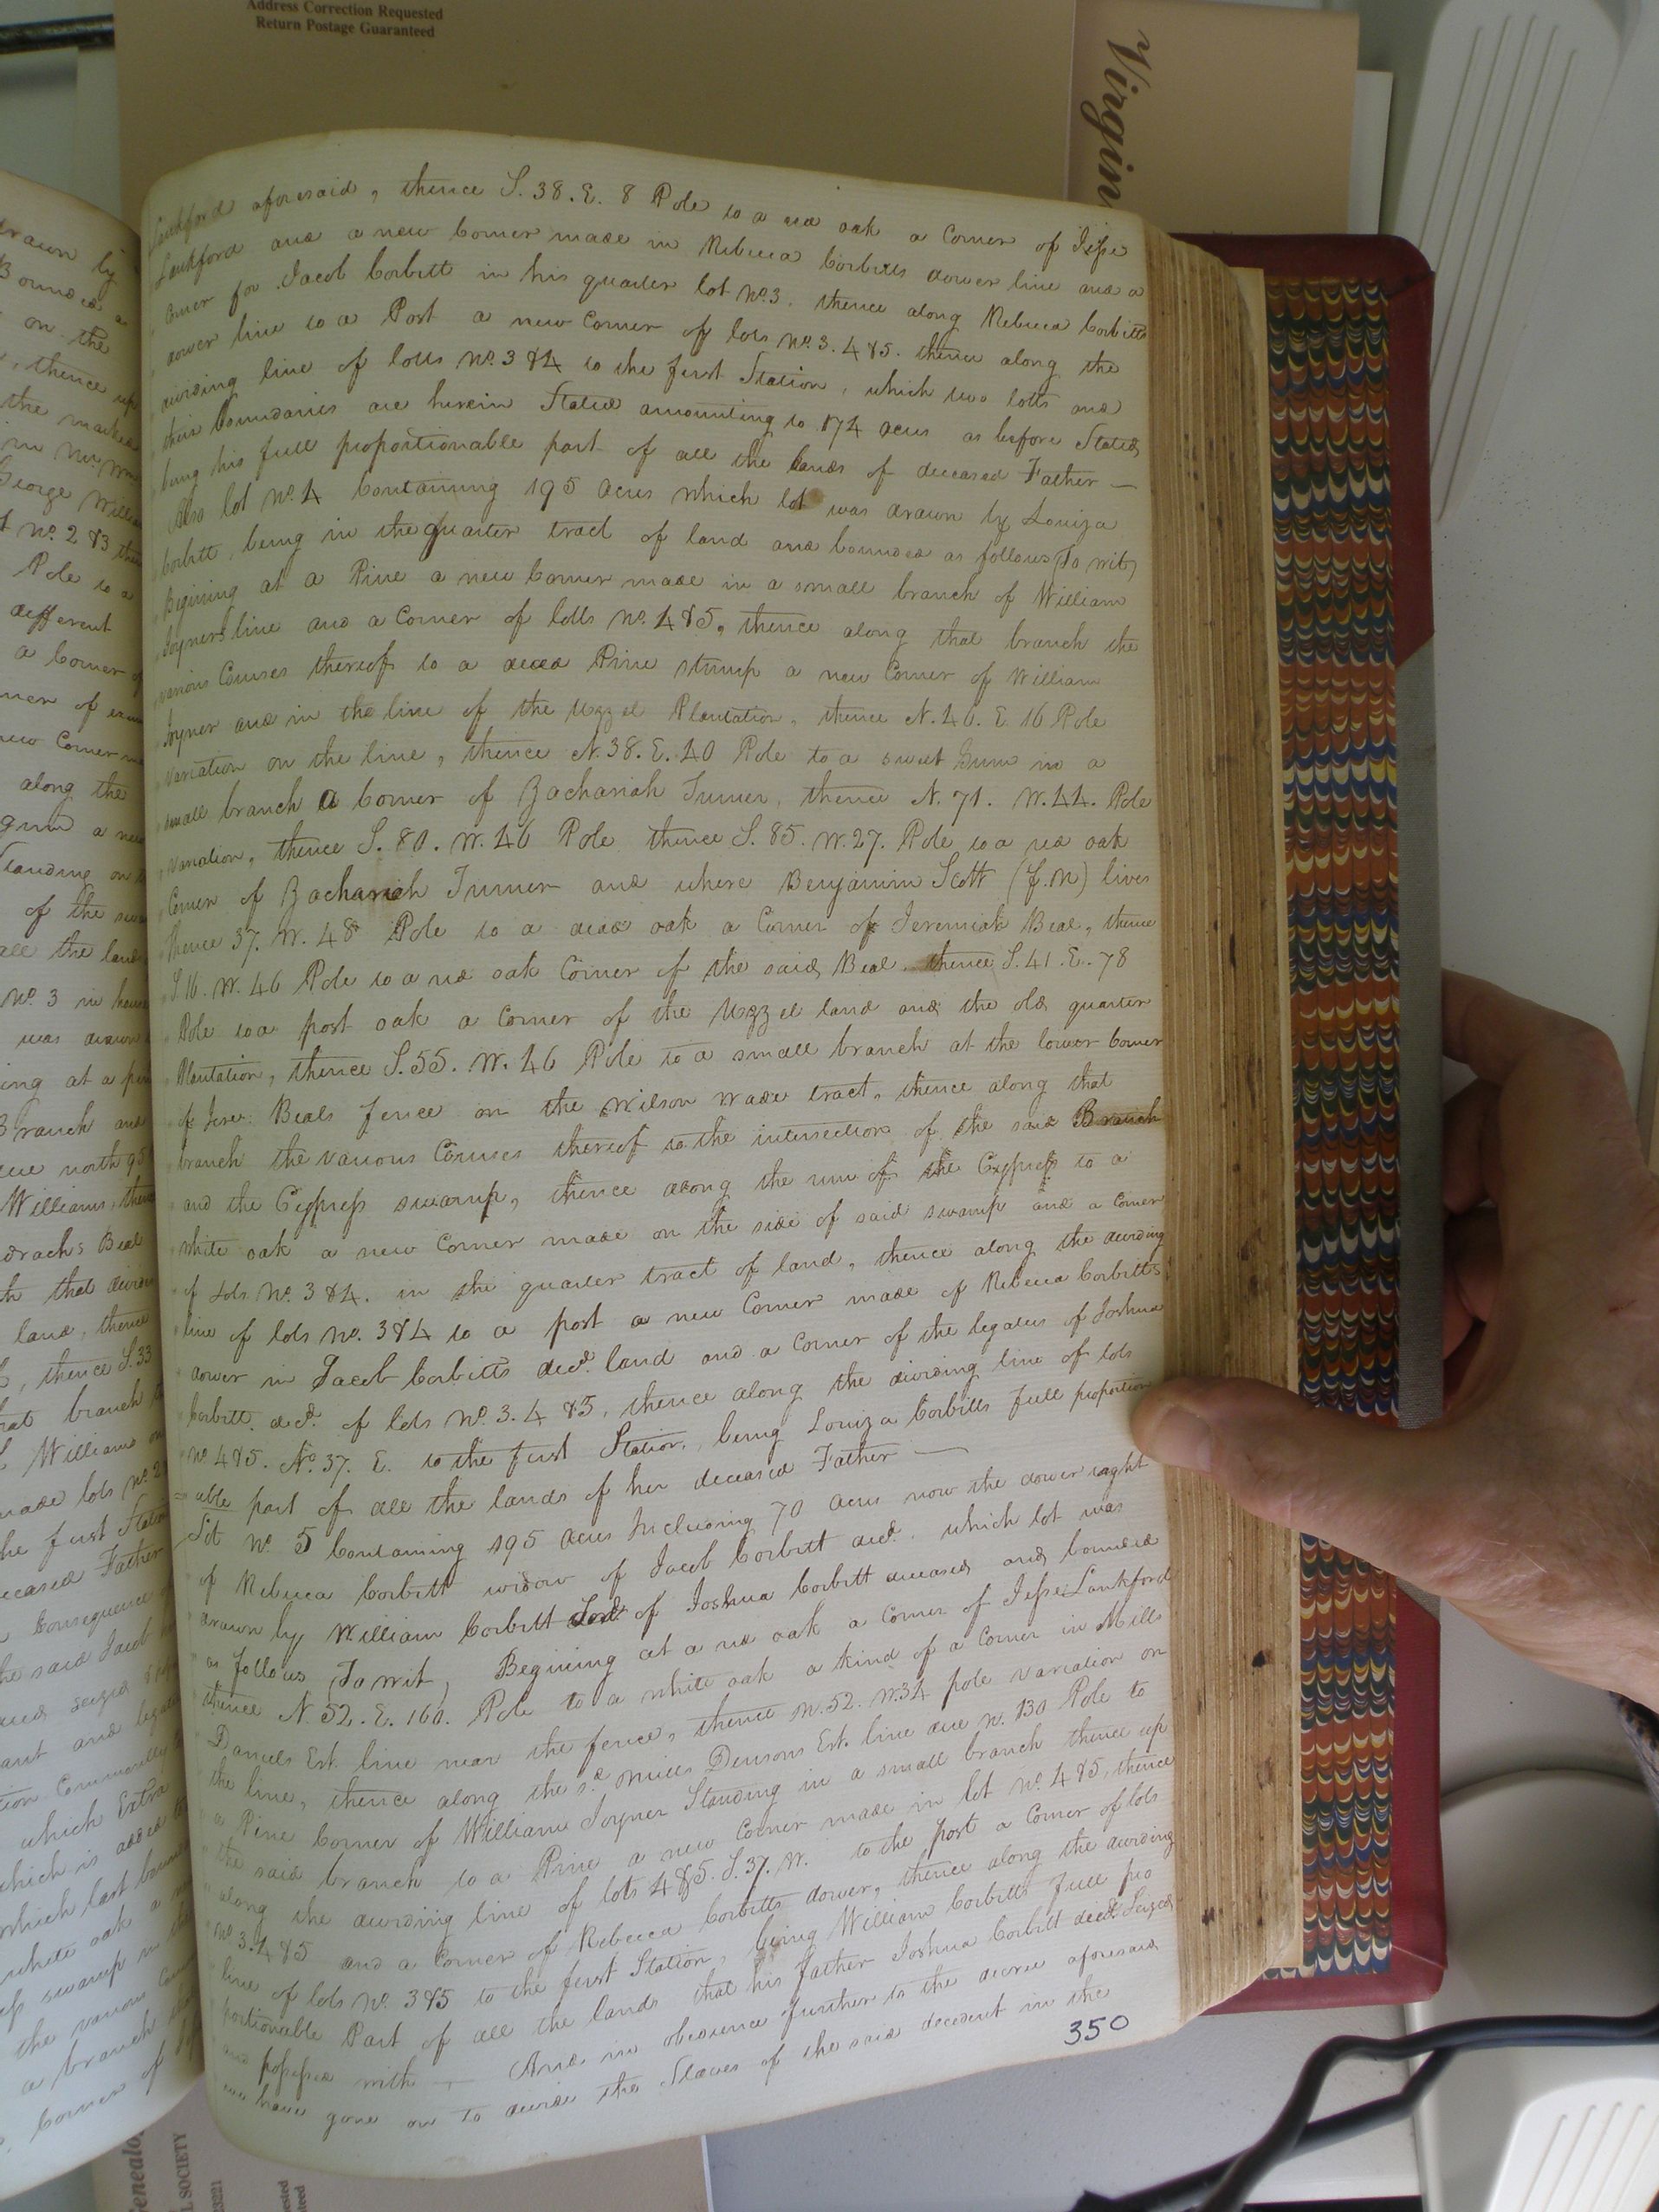 Address Correction Requested
Return Postage Guaranteed
Virgin
drawn by
Bounded
on the
, thence up
the marked
in
George Willia
No. 2 & 3
Pole to a
different
a Corner
along the
gum a new
Standing on
of the
all the land
No. 3 in
was drawn
ing at a
Branch and
due north
Williams, then
drachs Beal
land, thence
, thence S. 33
branch
Williams
made lots No. 2
the first Station
deceased Father
Consequence
the said Jacob
and seized
which Extra
which is added
which last
white oak a
swamp
the various
a branch
Corner of
Lankford aforesaid, thence S. 38. E. 8 Pole to a red oak a Corner of Jesse
Lankford and a new Corner made in Rebecca Corbitts dower line and a
Corner for Jacob Corbitt in his quarter lot No. 3. thence along Rebecca Corbitts
dower line to a Post a new Corner of lots No. 3. 4 & 5. thence along the
dividing line of lotts No. 3 & 4 to the first Station, which two lotts and
their boundaries are herein Stated amounting to 174 acres as before Stated,
being his full proportionable part of all the lands of deceased Father —
Also lot No. 4 Containing 195 acres which lot was drawn by Louiza
Corbitt, being in the quarter tract of land and bounded as follows (To wit)
Begining at a Pine a new Corner made in a small branch of William
Joyners line and a Corner of lotts No. 4 & 5, thence along that branch the
various Courses thereof to a dead Pine stump a new Corner of William
Joyner and in the line of the Uzzel Plantation, thence N. 46. E. 16 Pole
variation on the line, thence N. 38. E. 40 Pole to a sweet Gum in a
small branch a Corner of Zachariah Turner, thence N. 71. W. 44. Pole
variation, thence S. 80. W. 46 Pole thence S. 85. W. 27. Pole to a red oak
Corner of Zachariah Turner and where Benjamin Scott (f.n) lives
thence 37. W. 48 Pole to a dead oak a Corner of Jeremiah Beal, thence
S 16. W. 46 Pole to a red oak Corner of the said Beal. thence S. 41. E. 78
Pole to a post oak a Corner of the Uzzel land and the old quarter
Plantation, thence S. 55. W. 46 Pole to a small branch at the lower Corner
of Jere: Beals fence on the Wilson Wade tract, thence along that
branch the various Courses thereof to the intersection of the said Branch
and the Cypress swamp, thence along the run of the Cypress to a
white oak a new Corner made on the side of said swamp and a Corner
of Lots No. 3 & 4. in the quarter tract of land, thence along the dividing
line of lots No. 3 & 4 to a post a new Corner made of Rebecca Corbitts
dower in Jacob Corbitts decd. land and a Corner of the legatees of Joshua
Corbitt decd. of lots No. 3. 4 & 5, thence along the dividing line of lots
No 4 & 5. No. 37. E. to the first Station, being Louiza Corbitts full proportion
able part of all the lands of her deceased Father —
Lot No. 5 Containing 195 acres Including 70 acres now the dower right
of Rebecca Corbitt widow of Jacob Corbitt decd. which lot was
drawn by William Corbitt of Joshua Corbitt deceased and bounded
as follows To wit, Begining at a red oak a Corner of Jesse Lankford
thence N. 52. E. 160. Pole to a white oak a kind of a Corner in Mills
Daniels Est. line near the fence, thence N. 52. W. 34 pole variation on
the line, thence along the sd. Mills Densons Est. line due N. 130 Pole to
a Pine Corner of William Joyner Standing in a small branch thence up
the said branch to a Pine a new Corner made in lot No. 4 & 5, thence
along the dividing line of lots 4 & 5. S. 37. W. to the post a Corner of lots
No. 3. 4 & 5 and a Corner of Rebecca Corbitts dower, thence along the dividing
line of lots No. 3 & 5 to the first Station, being William Corbitts full pro
portionable Part of all the lands that his father Joshua Corbitt decd. Seized
and possessed with — And in obedience further to the decree aforesaid
we have gone on to divide the Slaves of the said decedent in the
350
Genealo
L SOCIETY
23221